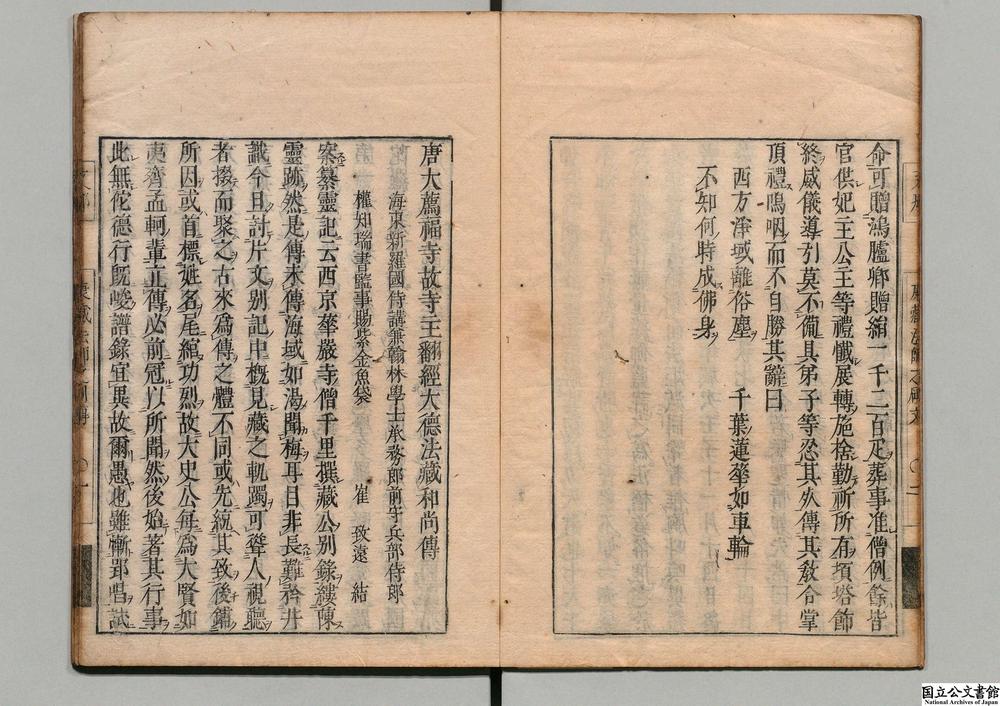 命可贈鴻臚卿贈絹一千二百疋葬事准僧例餘皆
官供妃主公王等禮懺展轉施捨勤祈所有塡塔節
終威儀導引莫不備具弟子等忍其火傳其教合掌
頂禮嗚咽而不自勝其辭曰
西方淨域離俗塵 千葉蓮華如車輪
不知何時成佛身
唐大薦福寺故寺主翻經大德法藏和尚傳
海東新羅國侍講兼翰林學士承務郎前守兵部侍郎
權知瑞書監事賜紫金魚袋 崔 致遠 結
案纂靈記云西京華嚴寺僧千里撰藏公別錄縷陳
靈跡然是傳未傳海域如渴聞梅耳目非長難矜井
識今且討片文別記申槪見藏之軌躅可聳人視聽
者掇而聚之古來爲傳之體不同或先統其致後鋪
所因或首標姓名尾綰功烈故大史公每爲大賢如
夷齊孟軻輩立傳必前冠以所聞然後始著其行事
此無佗德行旣峻譜錄宜異故爾愚也雖慚郢唱試
国立公文書館
National Archives of Japan